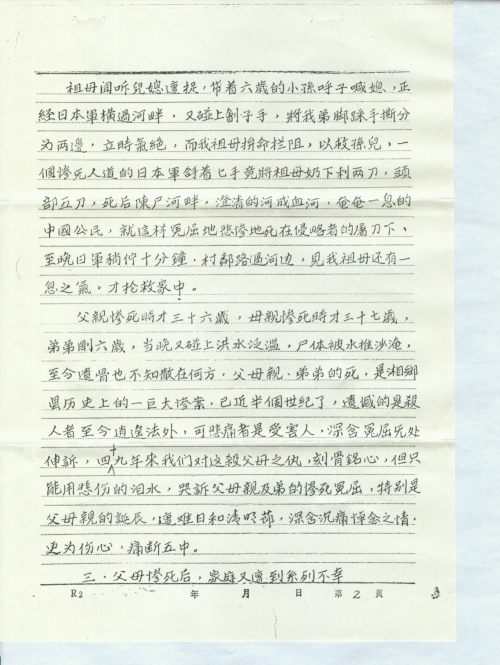 祖母闻听兒媳遭捉，带着六歲的小孫呼子喊媳，正
經日本軍橫過河畔，又碰上刽子手，將我弟脚踩手撕分
为两邊，立時氣絶，而我祖母拚命拦阻，以救孫兒，一
個惨死人道的日本軍斜着匕手竟將祖母奶下刺两刀，頭
部五刀，死后陳尸河畔，澄清的河成血河，奄奄一息的
中國公民，就這样冤屈地悲惨地死在侵略者的屠刀下、
至晚日軍稍停十分鐘，村鄰路過河边，見我祖母还有一
息之氣，才抢救家中。
父親惨死時才三十六歲，母親惨死時才三十七歲，
弟弟剛六歲，当晚又碰上洪水泛滥，尸体被水推沙淹，
至今遺骨也不知散在何方，父母親、弟弟的死，是湘鄉
县历史上的一巨大惨案，已近半個世紀了，遺憾的是殺
人者至今逍遥法外，可悲痛者是受害人，深含冤屈无处
伸訴，四十九年來我们对這殺父母之仇，刻骨銘心，但只
能用悲伤的泪水，哭訴父母親及弟的惨死冤屈，特别是
父母親的誕辰，遭难日和清明節，深含沉痛悼念之情，
更为伤心，痛断五中。
三．父母惨死后，家庭又遭到系列不幸
R2 年 月 日 第2頁